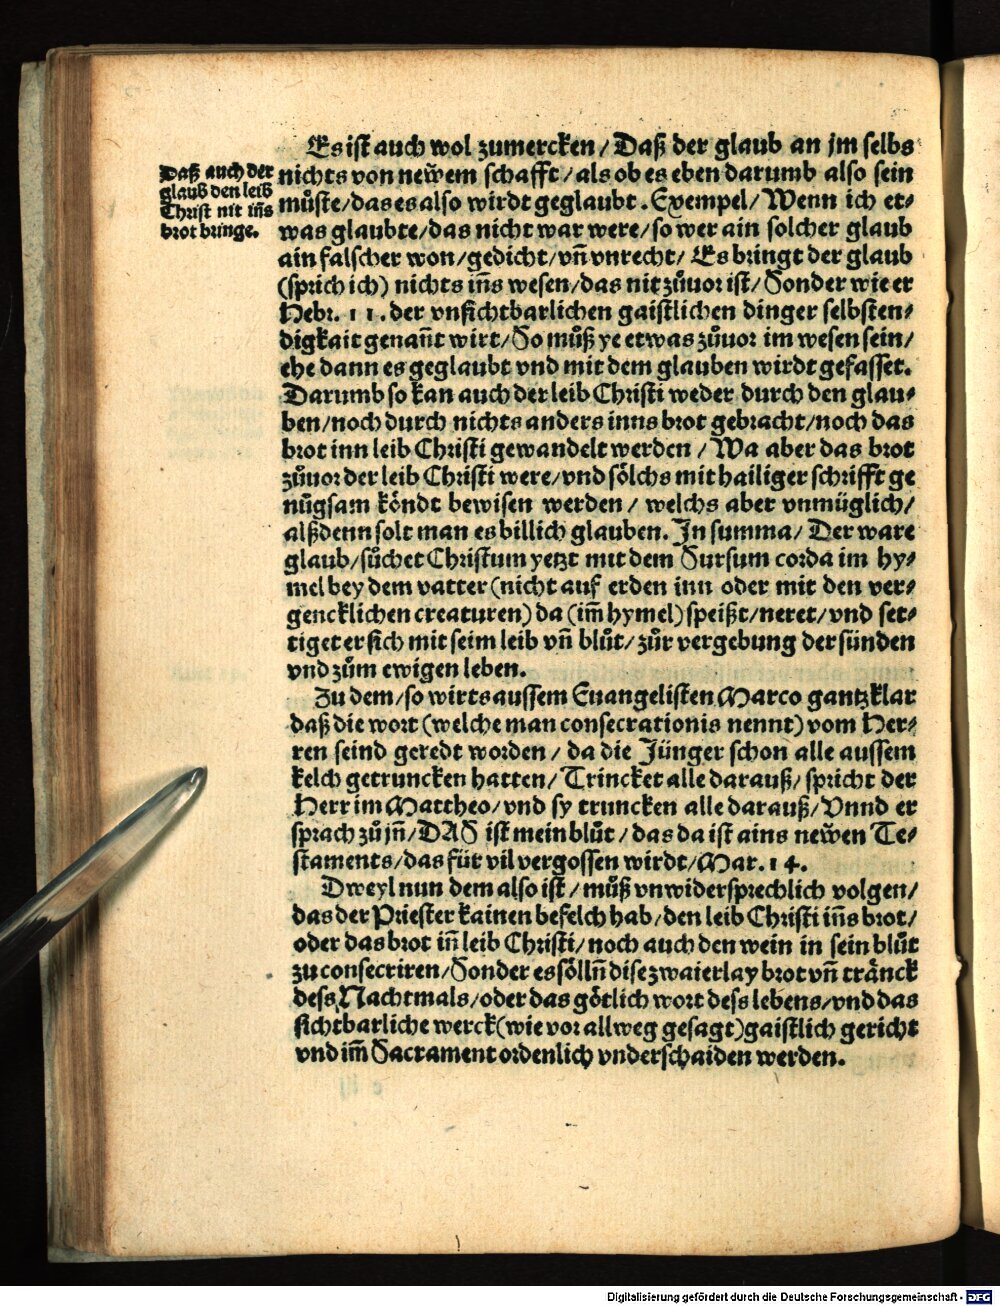 Es ist auch wol zumercken / Daß der glaub an jm selbs
Daß auch der
glaub den leib
Christ nit iñs
brot bringe.
nichts von neẅem schafft / als ob es eben darumb also sein
můste / das es also wirdt geglaubt . Exempel / Wenn ich et⸗
was glaubte / das nicht war were / so wer ain solcher glaub
ain falscher won / gedicht / vñ vnrecht / Es bringt der glaub
(sprich ich) nichts iñs wesen / das nit zůuor ist / Sonder wie er
Hebr. 11. der vnsichtbarlichen gaistlichen dinger selbsten⸗
digkait genañt wirt / So můß ye etwas zůuor im wesen sein /
ehe dann es geglaubt vnd mit dem glauben wirdt gefasset.
Darumb so kan auch der leib Christi weder durch den glau⸗
ben / noch durch nichts anders inns brot gebracht / noch das
brot inn leib Christi gewandelt werden / Wa aber das brot
zůuor der leib Christi were / vnd sölchs mit hailiger schrifft ge
nůgsam köndt bewisen werden / welchs aber vnmüglich /
alßdenn solt man es billich glauben. In summa / Der ware
glaub / sůchet Christum yetzt mit dem Sursum corda im hy⸗
mel bey dem vatter (nicht auf erden inn oder mit den ver⸗
gencklichen creaturen) da (im̃ hymel) speißt / neret / vnd set⸗
tiget er sich mit seim leib vñ blůt / zůr vergebung der sünden
vnd zům ewigen leben.
Zu dem / so wirts aussem Euangelisten Marco gantz klar
daß die wort (welche man consecrationis nennt) vom Her⸗
ren seind geredt worden / da die Jünger schon alle aussem
kelch getruncken hatten / Trincket alle darauß / spricht der
Herr im Mattheo / vnd sy truncken alle darauß / Vnnd er
sprach zů jñ / DAS ist mein blůt / das da ist ains neẅen Te⸗
staments / das für vil vergossen wirdt / Mar. 14.
Dweyl nun dem also ist / můß vnwidersprechlich volgen /
das der Priester kainen befelch hab / den leib Christi iñs brot /
oder das brot iñ leib Christi / noch auch den wein in sein blůt
zu consecriren / Sonder es sölln̄ dise zwaierlay brot vñ tränck
dess Nachtmals / oder das götlich wort dess lebens / vnd das
sichtbarliche werck (wie vor allweg gesagt) gaistlich gericht
vnd im̃ Sacrament ordenlich vnderschaiden werden.
Digitalisierung gefördert durch die Deutsche Forschungsgemeinschaft - DFG